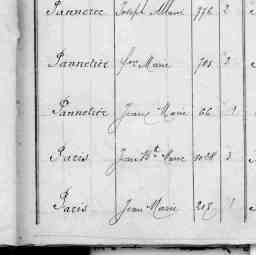 Pannetier Joseph Marie 776 2
Pannetier fçois Marie 701 2
Pannetier Jean Marie 66 1
Paris Jean Bte Marie 1028 3
Paris Jean Marie 218 1